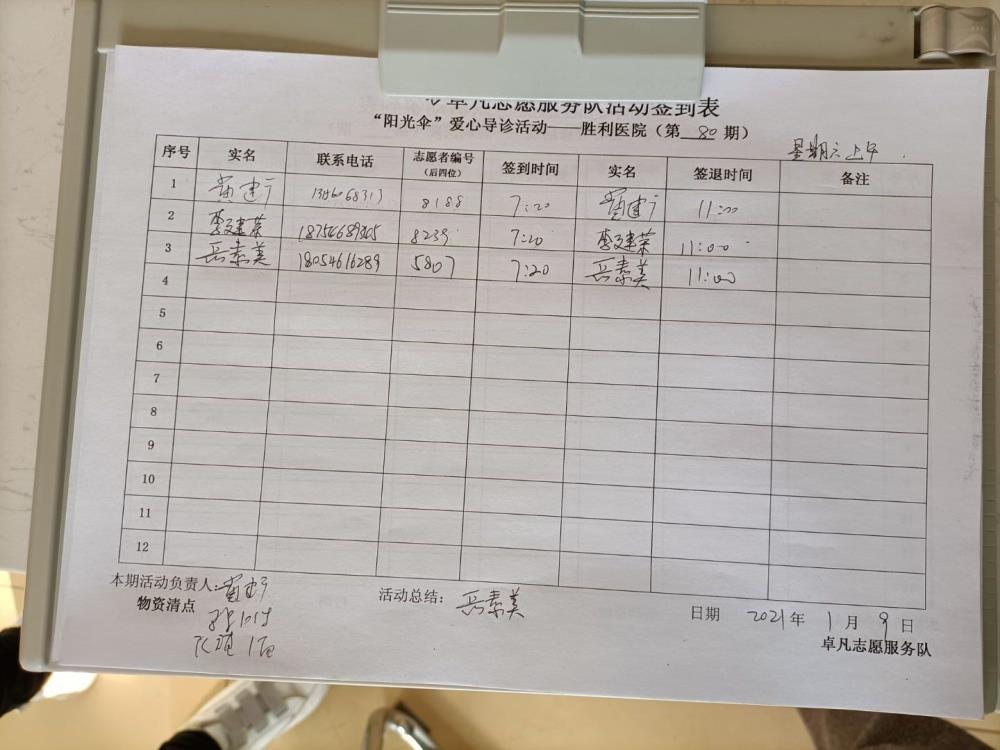 卓凡志愿服务队活动签到表
“阳光伞”爱心导诊活动——胜利医院（第 80 期）
星期六上午
序号 实名 联系电话 志愿者编号（后四位） 签到时间 实名 签退时间 备注
1 建广 8188 7:20 建广 11:00
2 李建荣 8239 7:20 李建荣 11:00
3 岳素美 18054616289 5807 7:20 岳素美 11:00
4
5
6
7
8
9
10
11
12
本期活动负责人: 建广 活动总结： 岳素美 日期 2021年 1月 9日
物资清点
卓凡志愿服务队